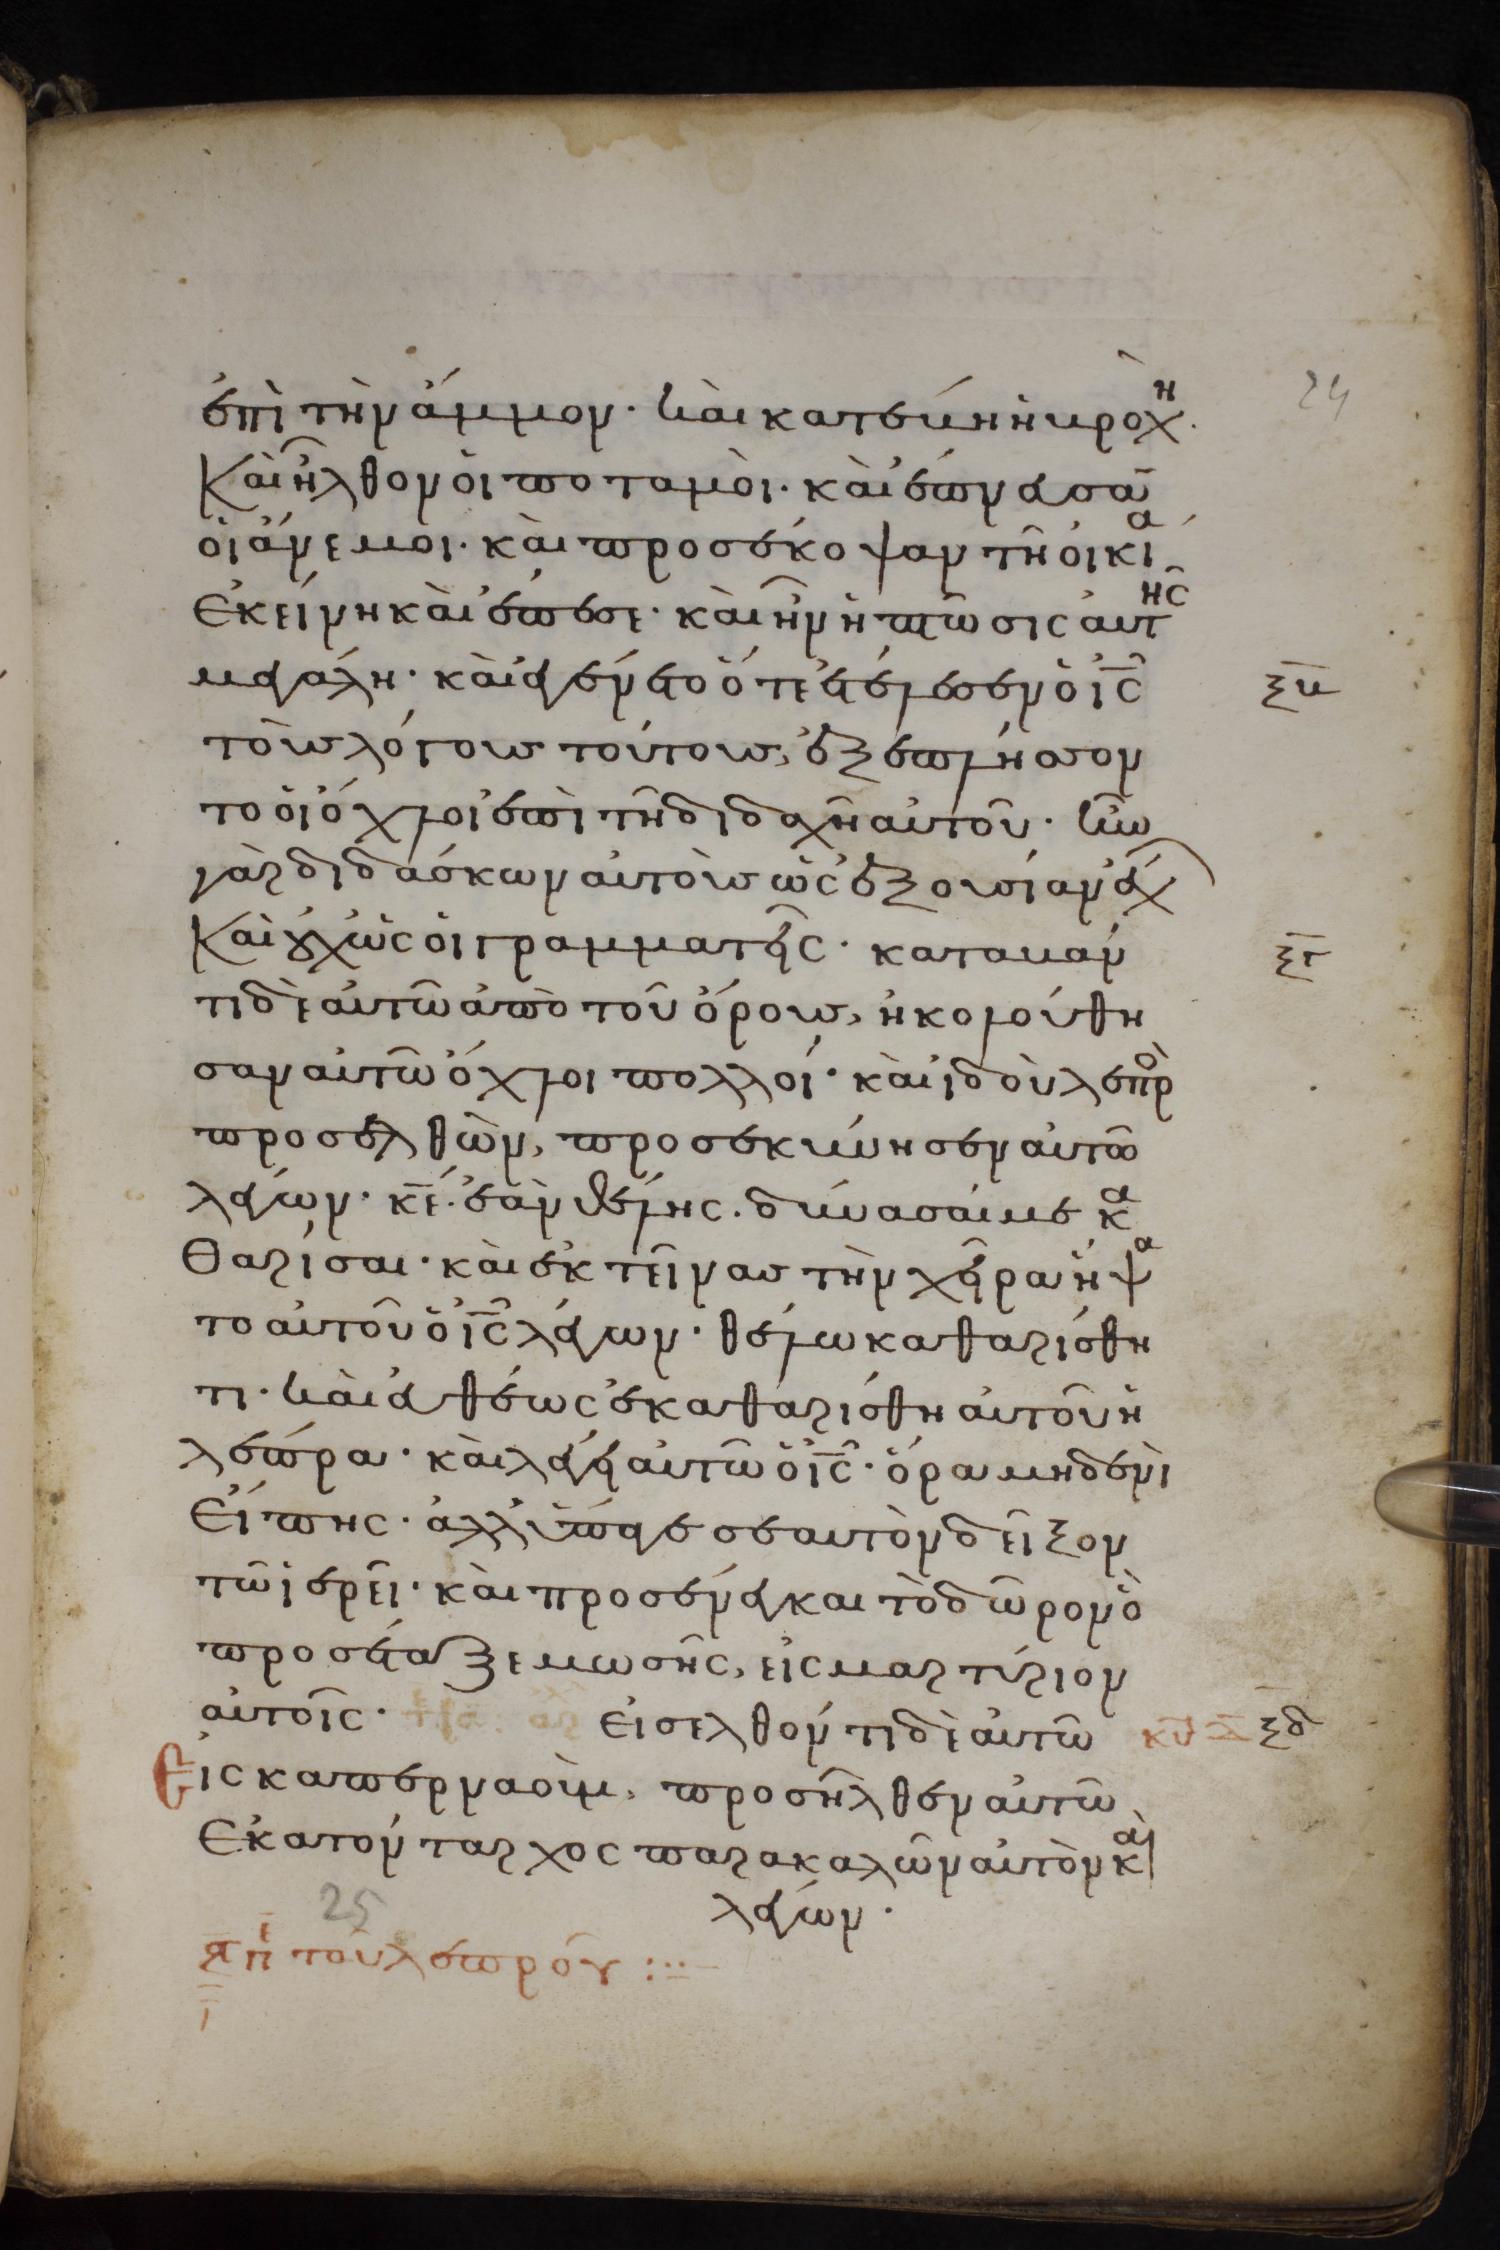 24
ἐπὶ τὴν ἄμμον· καὶ κατέβη ἡ βροχὴ·
Καὶ ἦλθον οἱ ποταμοὶ· καὶ ἔπνευσαν
οἱ ἄνεμοι· καὶ προσέκοψαν τῆ οἰκία
Ἐκείνη καὶ ἔπεσε· καὶ ἦν ἡ πτῶσις αὐτῆς
μεγάλη· καὶ ἐγένετο ὅτε ἐτέλεσεν ὁ ις
ξβ
τοὺς λόγους τούτους, ἐξεπλήσσον
το οἱ ὄχλοι ἐπὶ τῆ διδαχῆ αὐτοῦ· ἦν
γὰρ διδάσκων αὐτοὺς ὡς ἐξουσίαν ἔχ
Καὶ οὐχ ὡς οἱ γραμματεῖς· καταβάν
ξγ
τι δὲ αὐτῶ ἀπὸ τοῦ ὄρους, ἠκολούθη
σαν αὐτῶ ὄχλοι πολλοί· καὶ ἰδοὺ λεπρὸ
προσελθὼν, προσεκύνησεν αὐτῶ
λέγων· κε· ἐὰν θέλης· δύνασαί με κα
θαρίσαι· καὶ ἐκτείνας τὴν χεῖρα ἥψα
το αὐτοῦ ὁ ις λέγων· θέλω καθαρίσθη
τι· καὶ εὐθέως ἐκαθαρίσθη αὐτοῦ ἡ
λέπρα· καὶ λέγει αὐτῶ ὁ ις· ὅρα μηδενὶ
Εἴπης· ἀλλ' ὕπαγε σεαυτὸν δεῖξον
τῶ ἱερεῖ· καὶ προσένεγκαι τὸ δῶρον ὃ
προσέταξε μωσῆς, εἰς μαρτύριον
αὐτοῖς· Εἰσελθόντι δὲ αὐτῶ
ξδ
Εἰς καπερναοὺμ, προσῆλθεν αὐτῶ
Ἑκατόνταρχος παρακαλῶν αὐτὸν καὶ
λέγων·
25
τοῦ λεπροῦ :··–